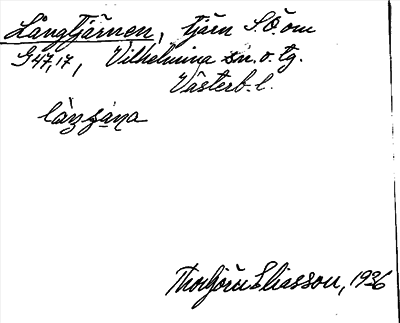 Långtjärnen, tjärn S.Ö. om
G47,17, Vilhelmina sn. o. tg.
Västerb. l.
Thorbjörn Eliasson, 1936